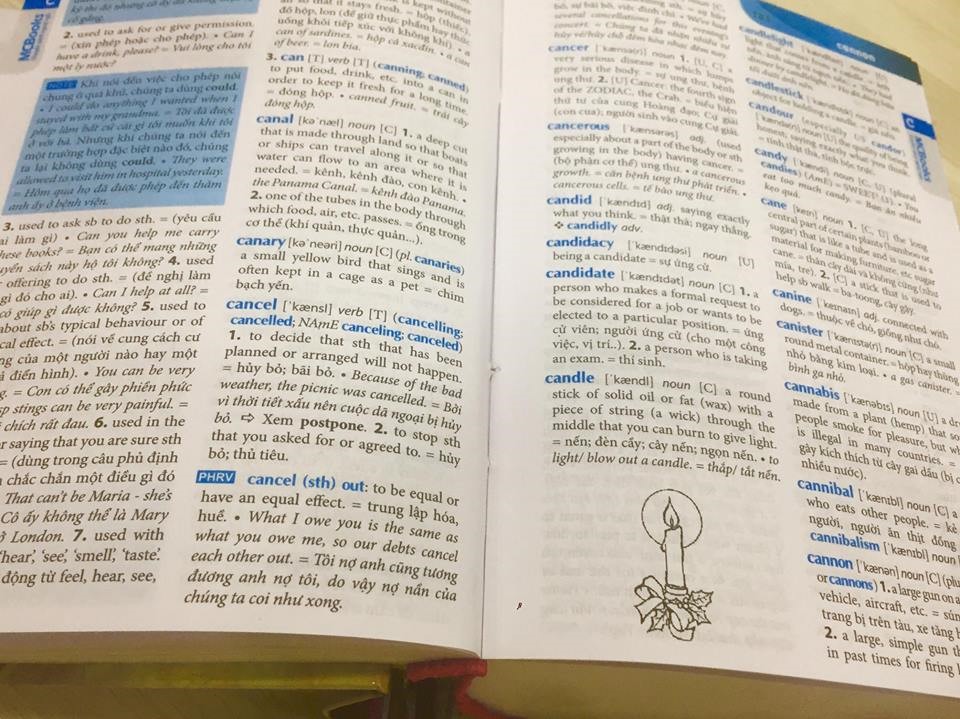 C
MCBooks
2. used to ask for or give permission.
= (xin phép hoặc cho phép). • Can I
have a drink, please? = Vui lòng cho tôi
một ly nước?
NOTE Khi nói đến việc cho phép nói
chung ở quá khứ, chúng ta dùng could.
• I could do anything I wanted when I
stayed with my grandma. = Tôi đã được
phép làm bất cứ cái gì tôi muốn khi tôi
ở với bà. Nhưng khi chúng ta nói đến
một trường hợp đặc biệt nào đó, chúng
ta lại không dùng could. • They were
allowed to visit him in hospital yesterday.
= Hôm qua họ đã được phép đến thăm
anh ấy ở bệnh viện.
3. used to ask sb to do sth. = (yêu cầu
ai làm gì) • Can you help me carry
these books? = Bạn có thể mang những
sách này hộ tôi không? 4. used
offering to do sth. = (đề nghị làm
gì đó cho ai). • Can I help at all? =
có giúp gì được không? 5. used to
about sb's typical behaviour or of
cal effect. = (nói về cung cách cư
của một người nào hay một
điển hình). • You can be very
= Con có thể gây phiền phức
stings can be very painful. =
chích rất đau. 6. used in the
saying that you are sure sth
= (dùng trong câu phủ định
chắc chắn một điều gì đó
That can't be Maria - she's
Cô ấy không thể là Mary
ở London. 7. used with
'hear', 'see', 'smell', 'taste'.
động từ feel, hear, see,
an so that it stays fresh. = hộp (thiếc),
đồ hộp, lon (để giữ thực phẩm hay thức
uống khỏi tiếp xúc với không khí). • a
can of sardines. = hộp cá xacđin. • a can
of beer. = lon bia.
3. can [T] verb [T] (canning; canned)
to put food, drink, etc. into a can in
order to keep it fresh for a long time.
= đóng hộp. • canned fruit. = trái cây
đóng hộp.
canal [kə'næl] noun [C] 1. a deep cut
that is made through land so that boats
or ships can travel along it or so that
water can flow to an area where it is
needed. = kênh, kênh đào, con kênh. •
the Panama Canal. = kênh đào Panama.
2. one of the tubes in the body through
which food, air, etc. passes. = ống trong
cơ thể (khí quản, thực quản...).
canary [kə'neəri] noun [C] (pl. canaries)
a small yellow bird that sings and is
often kept in a cage as a pet = chim
bạch yến.
cancel ['kænsl] verb [T] (cancelling;
cancelled; NAmE canceling; canceled)
1. to decide that sth that has been
planned or arranged will not happen.
= hủy bỏ; bãi bỏ. • Because of the bad
weather, the picnic was cancelled. = Bởi
vì thời tiết xấu nên cuộc dã ngoại bị hủy
bỏ. ⇨ Xem postpone. 2. to stop sth
that you asked for or agreed to. = hủy
bỏ; thủ tiêu.
PHRV cancel (sth) out: to be equal or
have an equal effect. = trung lập hóa,
huề. • What I owe you is the same as
what you owe me, so our debts cancel
each other out. = Tôi nợ anh cũng tương
đương anh nợ tôi, do vậy nợ nần của
chúng ta coi như xong.
bỏ, sự bãi bỏ, việc đình chỉ • We've had
several cancellations for this evening's
cancer ['kænsə(r)] noun 1. [U, C] a
very serious disease in which lumps
grow in the body. = sự ung thư, bệnh
ung thư. 2. [U] Cancer: the fourth sign
of the ZODIAC, the Crab. = biểu hiện
thứ tư của cung Hoàng đạo; Cự giải
(con cua); người sinh vào cung Cự giải.
cancerous ['kænsərəs] adj. (used
especially about a part of the body or sth
growing in the body) having cancer. =
(bộ phận cơ thể) ung thư. • a cancerous
growth. = căn bệnh ung thư phát triển. •
cancerous cells. = tế bào ung thư.
candid ['kændɪd] adj. saying exactly
what you think. = thật thà; ngay thẳng.
❖ candidly adv.
candidacy ['kændɪdəsi] noun [U]
being a candidate = sự ứng cử.
candidate ['kændɪdət] noun [C] 1. a
person who makes a formal request to
be considered for a job or wants to be
elected to a particular position. = ứng
cử viên; người ứng cử (cho một công
việc, vị trí..). 2. a person who is taking
an exam. = thí sinh.
candle ['kændl] noun [C] a round
stick of solid oil or fat (wax) with a
piece of string (a wick) through the
middle that you can burn to give light.
= nến; đèn cầy; cây nến; ngọn nến. • to
light/ blow out a candle. = thắp/ tắt nến.
cannon
candlelight
candlestick
candour (especially
honest; saying exactly what you think.
= tính thật thà, tính bộc trực.
candy ['kændi] noun [C, U] (plural
candies) (AmE) = SWEET (1). • You
eat too much candy. = Bạn ăn nhiều
kẹo quá.
cane [keɪn] noun 1. [C, U] the long
central part of certain plants (bamboo or
sugar) that is like a tube and is used as a
material for making furniture, etc sugar
cane. = thân cây dài và không cứng (như
mía, tre). 2. [C] a stick that is used to
help sb walk = ba-toong, cây gậy.
canine ['keɪnaɪn] adj. connected with
dogs. = thuộc về chó, giống như chó.
canister ['kænɪstə(r)] noun [C] a small
round metal container. = hộp hay thùng
nhỏ bằng kim loại. • a gas canister. =
bình ga nhỏ.
cannabis ['kænəbɪs] noun [U] a dr
made from a plant (hemp) that so
people smoke for pleasure, but wh
is illegal in many countries. =
gây kích thích từ cây gai dầu (bị
nhiều nước).
cannibal ['kænɪbl] noun [C] a
who eats other people. = kẻ
người, người ăn thịt đồng
cannibalism
cannon ['kænən] noun [C] (plu
or cannons) 1. a large gun on a
vehicle, aircraft, etc. = sún
trang bị trên tàu, xe tăng h
2. a large, simple gun th
in past times for firing
C
MCBooks